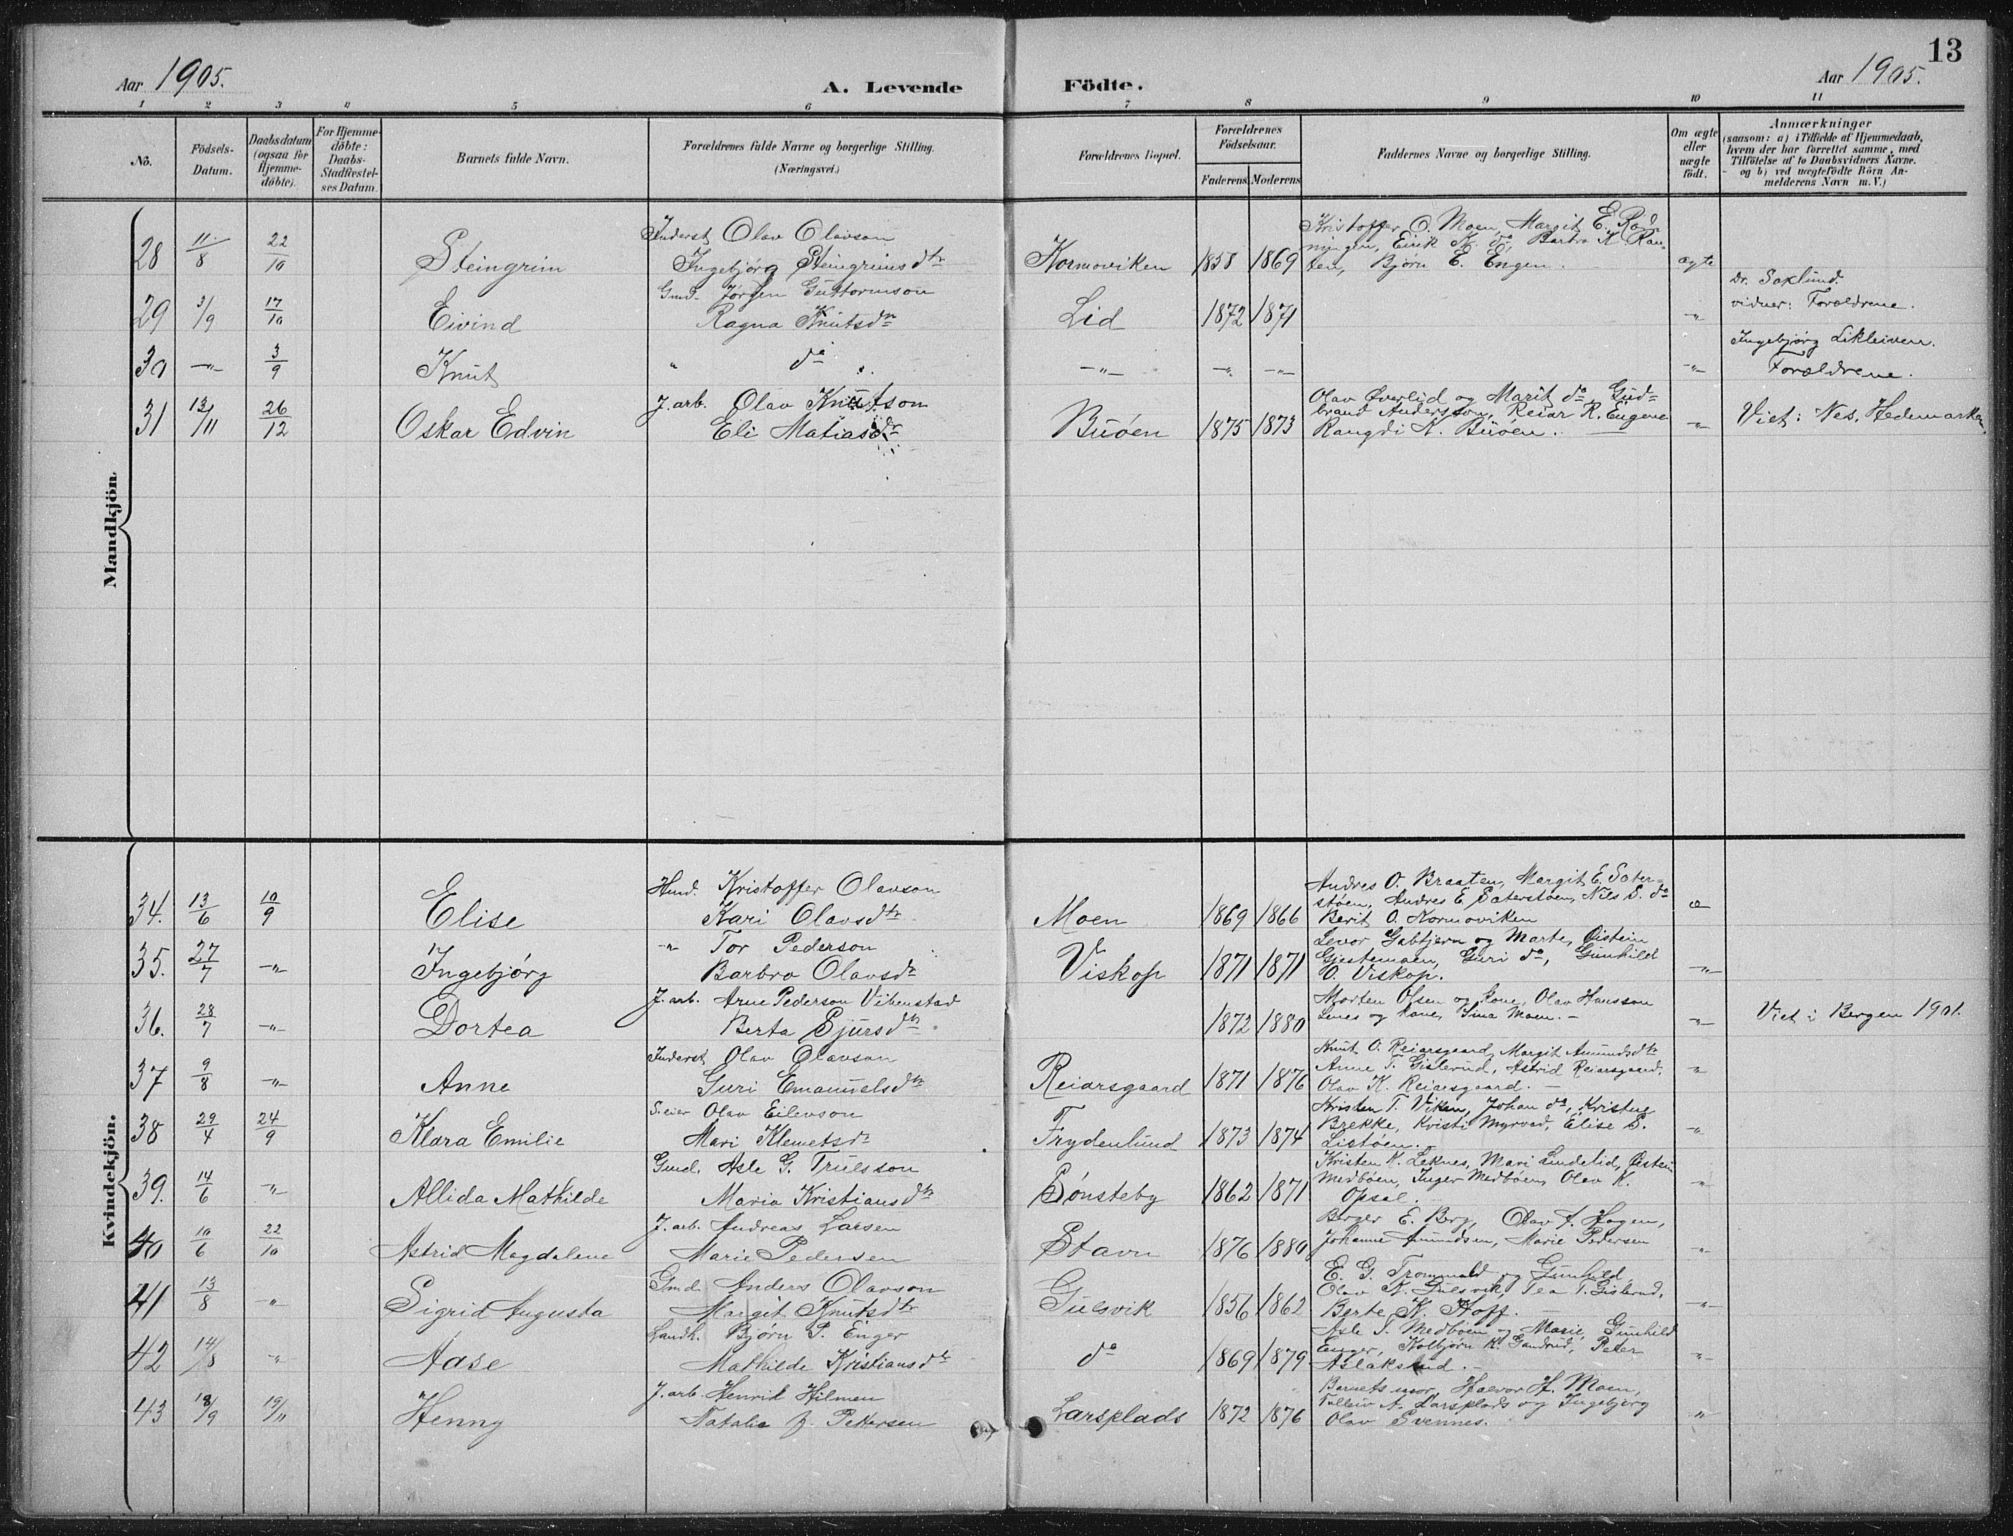 13
Aar 1905. A. Levende Födte. Aar 1905.
1 2 3 4 5 6 7 8 9 10 11
No. Födsels-Datum. Daabsdatum (ogsaa for Hjemme-döbte). For Hjemme-döbte: Daabs-Stadfæstel-ses Datum. Barnets fulde Navn. Forældrenes fulde Navne og borgerlige Stilling. (Næringsvei.) Forældrenes Bopæl. Forældrenes Födselsaar. Faderens Moderens Faddernes Navne og borgerlige Stilling. Om ægte eller uægte födt. Anmærkninger (saasom: a) i Tilfælde af Hjemmedaab, hvem der har forrettet samme, med Tilföielse af to Daabsvidners Navne. og b) ved uægtefödte Börn An-melderens Navn m. V.)
Mandkjön.
Inderst Olav Olavson Kristoffer O. Moen, Margit E. Røn-
28 11/8 22/10 Steingrim Ingebjørg Steingrimsdtr Kormoviken 1858 1869 ningen, Eirik K. do, Barbro K. Bra-
ten, Bjørn E. Engen. ægte
Gmd. Jørgen Guttormson Dr. Saxlund.
29 3/9 17/10 Eivind Ragna Knutsdtr Lid 1872 1871 " vidner: Forældrene.
30 -"- 3/9 Knut " do -"- -"- -"- -"- Ingebjørg Likleiven.
Forældrene.
J. arb. Olav Knutson Olav Øverlid og Marit do, Gud-
31 13/11 26/12 Oskar Edvin Eli Matiasdtr Buøen 1875 1873 brand Anderson, Reiar R. Engene
Rangdi K. Buøen. -"- Viet i Nes, Hedemarken.
Kvindekjön.
Husd. Kristoffer Olavson Andres O. Braaten, Margit E. Sater-
34. 13/6 10/9 Elise Kari Olavsdtr Moen 1869 1866 støen, Andres E. Saterstøen, Nils S. do
Berit O. Kormoviken æ
-"- Tor Pederson Levor Gubtjern og Marte, Øistein
35. 27/7 -"- Ingebjørg Barbro Olavsdtr Viskop 1871 1871 Gjestemoen, Guri do, Gunhild
O. Viskop. -"-
J. arb. Arne Pederson Vibenstad Morten Olsen og Kone, Olav Hansson
36. 28/7 -"- Dortea Berta Sjursdtr 1872 1880 Lines og Kone, Sina Moen. -"- Viet i Bergen 1901.
Inderst Olav Olavson Knut O. Reiarsgaard, Margit Amundsdtr
37 9/8 -"- Anne Guri Emanuelsdtr Reiarsgaard 1871 1876 Anne T. Gislerud, Astrid Reiarsgaard,
Olav K. Reiarsgaard. "
S.eier Olav Eilevson Kristen T. Viken, Johan do, Kristine
38 29/4 24/9 Klara Emilie Mari Klemetsdtr Frydenlund 1873 1874 Brekke, Kristi Myrvad, Elise S.
Listøen. -"-
Gmd. Asle G. Trulsson Kristen K. Leknes, Mari Lindelid, Øistein
39. 14/6 -"- Allida Mathilde Maria Kristiansdtr Sønsteby 1862 1871 Medbøen, Inger Medbøen, Olav K.
Opsal. -"-
J. arb. Andreas Larsen Berger E. Berg, Olav A. Hagen,
40 10/6 22/10 Astrid Magdalene Marie Pedersen Stavn 1876 1880 Johanne Amundsen, Marie Pedersen -"-
Gmd Anders Olavson E. G. Trommald og Gunhild
41 13/8 -"- Sigrid Augusta Margit Knutsdtr Gulsvik 1856 1862 Olav K. Gulsvik, Tea T. Gislerud,
Berte K. Hoff. -"-
Landh. Bjørn P. Enger Asle T. Medbøen og Marie, Gunhild
42 14/8 -"- Aase Mathilde Kristiansdtr do 1869 1879 Enger, Kolbjørn K. Gandrud, Peter
Aslaksrud. -"-
J. arb. Henrik Hilmen Barnets mor, Halvor H. Moen,
43 18/9 19/11 Henny Natalie Pettersen Larsplads 1872 1876 Tolleiv A. Larsplads og Ingebjørg
Olav Svennes. "